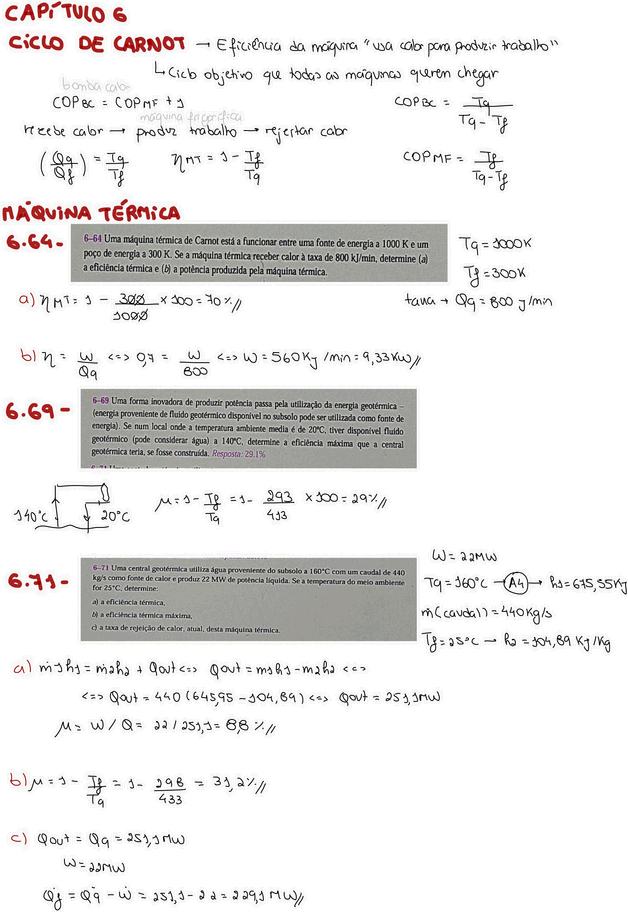 CAPÍTULO 6
CICLO DE CARNOT → Eficiência da máquina "usa calor para produzir trabalho"
↳ Ciclo objetivo que todas as máquinas querem chegar
bomba calor
COP BC = COP MF + 1
COP BC = Tq / (Tq - Tf)
máquina frigorífica
recebe calor → produz trabalho → rejeitar calor
(Qq/Qf) = Tq/Tf
η MT = 1 - Tf/Tq
COP MF = Tf / (Tq - Tf)
MÁQUINA TÉRMICA
6.64-
6–64 Uma máquina térmica de Carnot está a funcionar entre uma fonte de energia a 1000 K e um
poço de energia a 300 K. Se a máquina térmica receber calor à taxa de 800 kJ/min, determine (a)
a eficiência térmica e (b) a potência produzida pela máquina térmica.
Tq = 1000K
Tf = 300K
taxa → Qq = 800 J/min
a) η MT = 1 - 300/1000 × 100 = 70%//
b) η = W/Qq <=> 0,7 = W/800 <=> W = 560 Kj/min = 9,33 KW//
6.69-
6–69 Uma forma inovadora de produzir potência passa pela utilização da energia geotérmica –
(energia proveniente de fluido geotérmico disponível no subsolo pode ser utilizada como fonte de
energia). Se num local onde a temperatura ambiente média é de 20°C, tiver disponível fluido
geotérmico (pode considerar água) a 140°C, determine a eficiência máxima que a central
geotérmica teria, se fosse construída. Resposta: 29,1%
140°C
20°C
μ = 1 - Tf/Tq = 1 - 293/413 × 100 = 29%//
6.71-
6–71 Uma central geotérmica utiliza água proveniente do subsolo a 160°C com um caudal de 440
kg/s como fonte de calor e produz 22 MW de potência líquida. Se a temperatura do meio ambiente
for 25°C, determine:
a) a eficiência térmica,
b) a eficiência térmica máxima,
c) a taxa de rejeição de calor, atual, desta máquina térmica.
W = 22MW
Tq = 160°C → A4 → h1 = 675,55 Kj
ṁ (caudal) = 440 Kg/s
Tf = 25°C → h2 = 104,89 Kj/Kg
a) ṁ1h1 = ṁ2h2 + Qout <=> Qout = m1h1 - m2h2 <=>
<=> Qout = 440 (645,95 - 104,89) <=> Qout = 251,1MW
μ = W/Q = 22/251,1 = 8,8%//
b) μ = 1 - Tf/Tq = 1 - 298/433 = 31,2%//
c) Qout = Qq = 251,1 MW
W = 22MW
Q̇f = Q̇q - Ẇ = 251,1 - 22 = 229,1 MW//